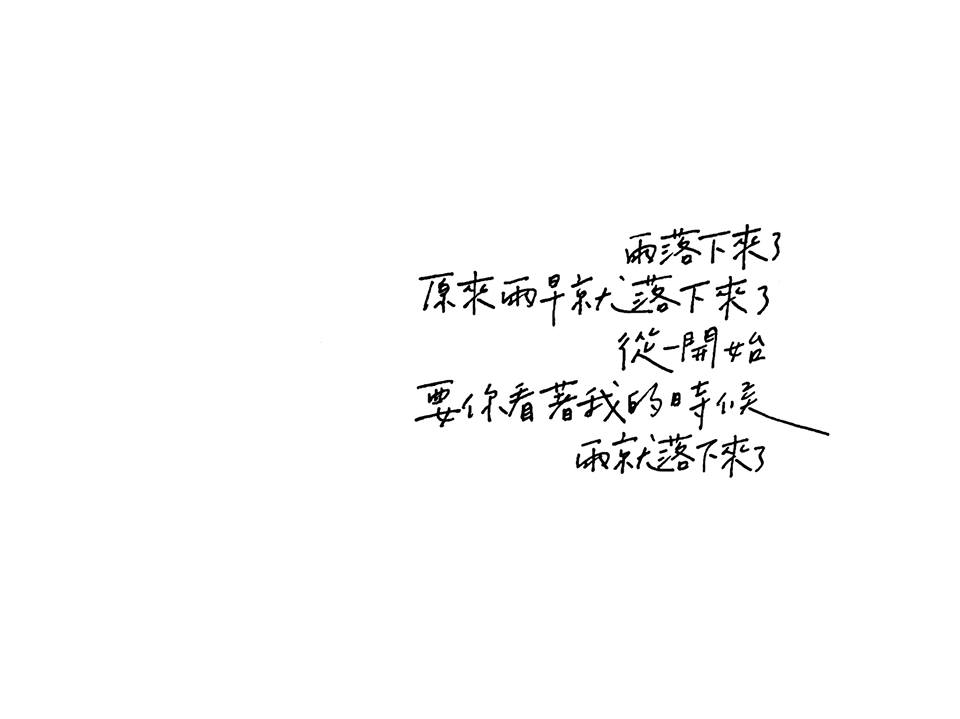 雨落下來了
原來雨早就落下來了
從一開始
要你看著我的時候
雨就落下來了